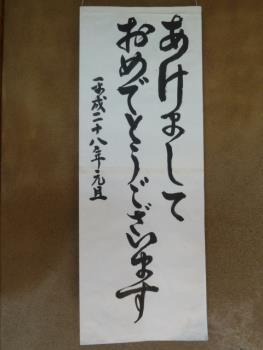 あけまして
おめでとうございます
平成二十八年元旦